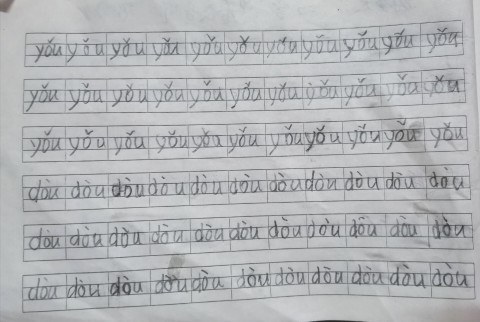 yǒu yǒu yǒu yǒu yǒu yǒu yǒu yǒu yǒu yǒu yǒu
yǒu yǒu yǒu yǒu yǒu yǒu yǒu yǒu yǒu yǒu yǒu
yǒu yǒu yǒu yǒu yǒu yǒu yǒu yǒu yǒu yǒu yǒu
dòu dòu dòu dòu dòu dòu dòu dòu dòu dòu dòu
dòu dòu dòu dòu dòu dòu dòu dòu dòu dòu dòu
dòu dòu dòu dòu dòu dòu dòu dòu dòu dòu dòu